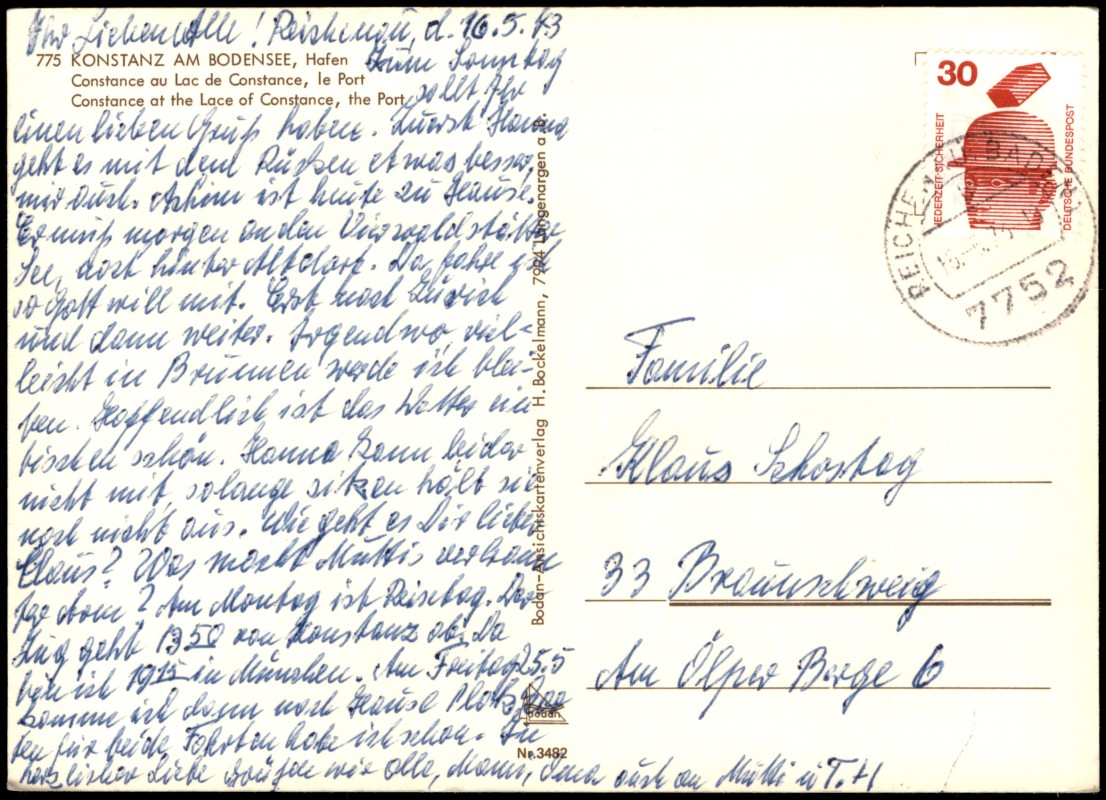 Ihr Lieben Alle! Reichenau, d. 16.5.73
775 KONSTANZ AM BODENSEE, Hafen
Constance au Lac de Constance, le Port
Constance at the Lace of Constance, the Port
Zum Sonntag
sollt Ihr
einen lieben Gruß haben. Zuerst Hanna
geht es mit dem Rücken etwas besser,
mir auch. Achim ist heute zu Hause.
Er muß morgen an den Vierwaldstätter
See, dort hinter Altdorf. Da fahre ich
so Gott will mit. Erst nach Zürich
und dann weiter. Irgendwo, viel-
leicht in Brunnen werde ich blei-
ben. Hoffentlich ist das Wetter ein
bischen schön. Hanna kann leider
nicht mit, solange sitzen hält sie
noch nicht aus. Wie geht es Dir lieber
Claus? Was macht Muttis verbrann
ter Arm? Am Montag ist Reisetag. Der
Zug geht 13 50 von Konstanz ab. Da
bin ich 19 15 in München. Am Freitag 25.5
komme ich dann nach Hause Platzkar
ten für beide Fahrten habe ich schon. In
herzlicher Liebe grüßen wir alle, Oma auch an Mutti u T. H
Bodan-Ansichtskartenverlag H. Bockelmann, 7994 Langenargen a. B.
Bodan
Nr. 3482
30
JEDERZEIT SICHERHEIT
DEUTSCHE BUNDESPOST
REICHE BAD
7752
Familie
Klaus Schostag
33 Braunschweig
Am Ölper Berge 6